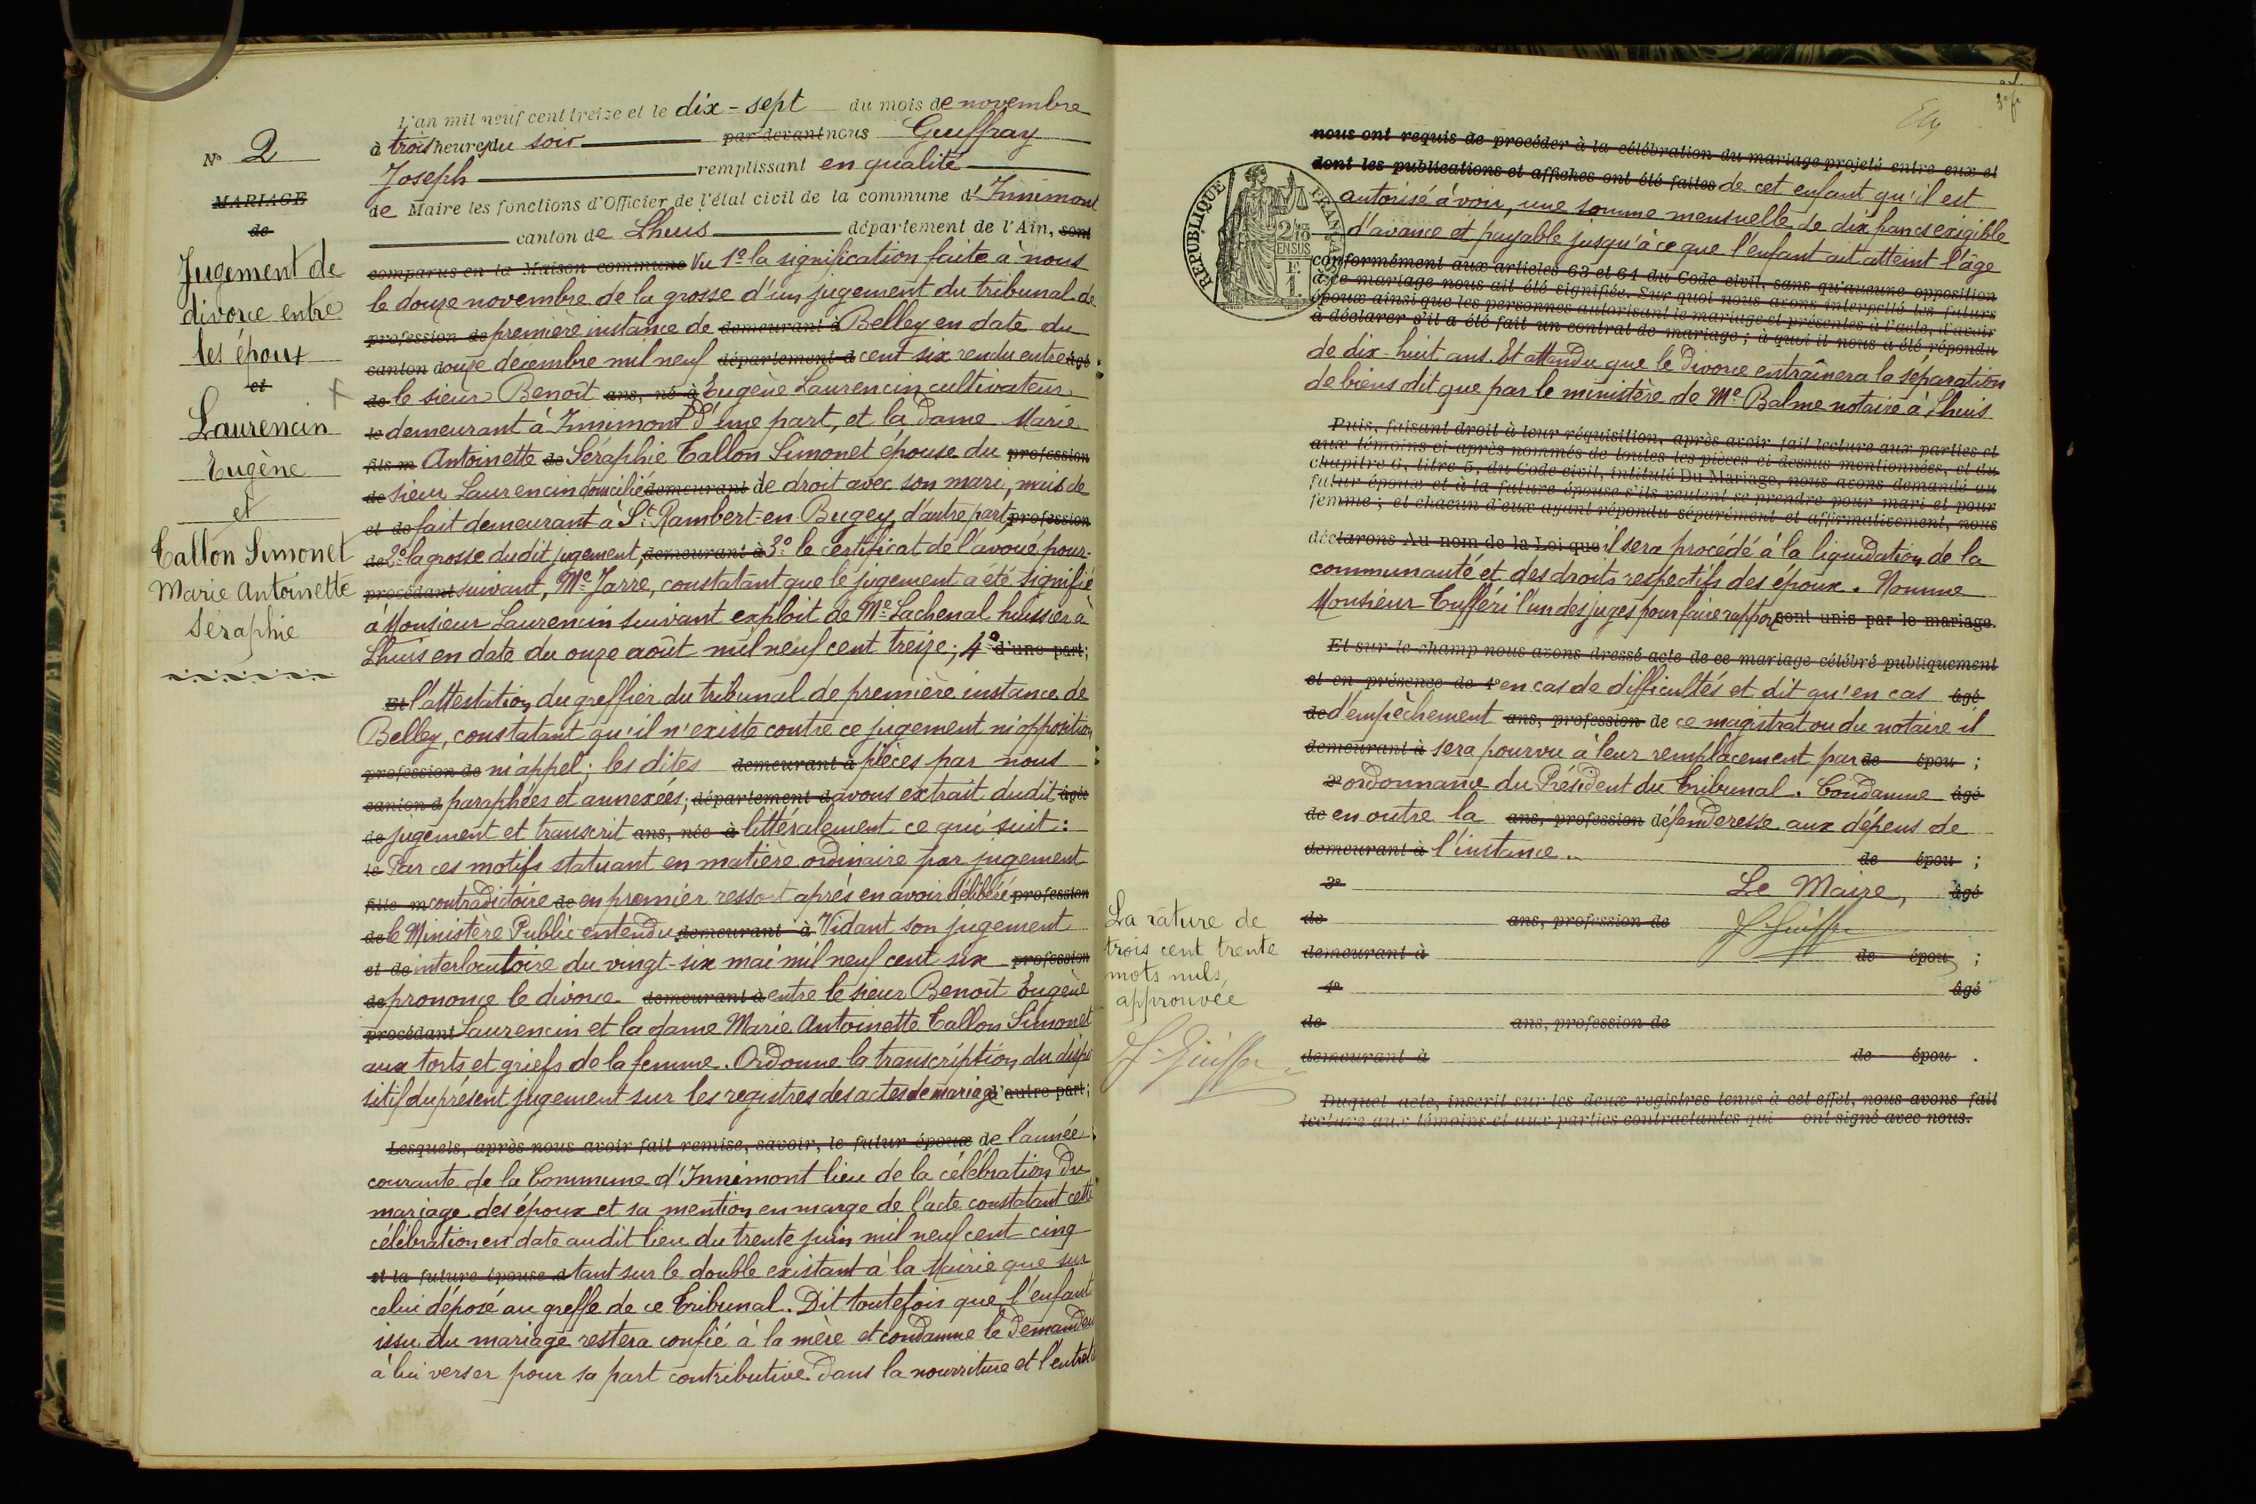 N° 2
MARIAGE
de
Jugement de
divorce entre
les époux
et
Laurencin
Eugène
et
Tallon Simonet
Marie Antoinette
Séraphie
L'an mil neuf cent treize et le dix-sept du mois de novembre
à trois heures du soir par devant nous Guiffray
Joseph remplissant en qualité
de Maire les fonctions d'Officier de l'état civil de la commune d'Innimont
canton de Lhuis département de l'Ain, sont
comparus en la Maison commune Vu 1° la signification faite à nous
le douze novembre de la grosse d'un jugement du tribunal de
profession de première instance de demeurant à Belley en date du
canton douze décembre mil neuf département d cent six rendu entre âgé
de le sieur Benoît ans, né à Eugène Laurencin cultivateur
le demeurant à Innimont d'une part, et la dame Marie
fils m Antoinette de Séraphie Tallon Simonet épouse du profession
de sieur Laurencin domicilié demeurant de droit avec son mari, mais de
et de fait demeurant à St Rambert-en-Bugey, d'autre part, profession
de 2° la grosse dudit jugement, demeurant à 3° le certificat de l'avoué pour-
procédant suivant, Me Jarre, constatant que le jugement a été signifié
à Monsieur Laurencin suivant exploit de Me Lachenal huissier à
Lhuis en date du onze août mil neuf cent treize; 4° d'une part;
Et l'attestation du greffier du tribunal de première instance de
Belley, constatant qu'il n'existe contre ce jugement ni opposition
profession de ni appel; les dites demeurant à pièces par nous
canton d paraphées et annexées; département d avons extrait dudit âgée
de jugement et transcrit ans, née à littéralement ce qui suit:
le Par ces motifs statuant en matière ordinaire par jugement
fille m contradictoire de en premier ressort après en avoir délibéré profession
de le Ministère Public entendu demeurant à Vidant son jugement
et de interlocutoire du vingt-six mai mil neuf cent six profession
de prononce le divorce demeurant à entre le sieur Benoit Eugène
procédant Laurencin et la dame Marie Antoinette Tallon Simonet
aux torts et griefs de la femme. Ordonne la transcription du dispo
sitif du présent jugement sur les registres des actes de mariage d'autre part;
Lesquels, après nous avoir fait remise, savoir, le futur époux de l'année
courante de la Commune d'Innimont lieu de la célébration du
mariage des époux et sa mention en marge de l'acte constatant cette
célébration en date audit lieu du trente juin mil neuf cent cinq
et la future épouse d tant sur le double existant à la Mairie que sur
celui déposé au greffe de ce Tribunal. Dit toutefois que l'enfant
issu du mariage restera confié à la mère et condamne le demandeur
à lui verser pour sa part contributive dans la nourriture et l'entretien
nous ont requis de procéder à la célébration du mariage projeté entre eux et
dont les publications et affiches ont été faites de cet enfant qu'il est
RÉPUBLIQUE FRANÇAISE
2/10 EN SUS
1 F.
autorisé à voir, une somme mensuelle de dix francs exigible
d'avance et payable jusqu'à ce que l'enfant ait atteint l'âge
conformément aux articles 63 et 64 du Code civil, sans qu'aucune opposition
à ce mariage nous ait été signifiée. Sur quoi nous avons interpellé les futurs
époux ainsi que les personnes autorisant le mariage et présentes à l'acte, d'avoir
à déclarer s'il a été fait un contrat de mariage; à quoi il nous a été répondu
de dix-huit ans. Et attendu que le divorce entraînera la séparation
de biens dit que par le ministère de Me Balme notaire à Lhuis
Puis, faisant droit à leur réquisition, après avoir fait lecture aux parties et
aux témoins ci-après nommés de toutes les pièces ci-dessus mentionnées, et du
chapitre 6, titre 5, du Code civil, intitulé Du Mariage, nous avons demandé au
futur époux et à la future épouse s'ils veulent se prendre pour mari et pour
femme; et chacun d'eux ayant répondu séparément et affirmativement, nous
déclarons Au nom de la Loi que il sera procédé à la liquidation de la
communauté et des droits respectifs des époux. Nomme
Monsieur Tufféri l'un des juges pour faire rapport sont unis par le mariage.
Et sur-le-champ nous avons dressé acte de ce mariage célébré publiquement
et en présence de 1° en cas de difficultés et dit qu'en cas âgé
de d'empêchement ans, profession de ce magistrat ou du notaire il
demeurant à sera pourvu à leur remplacement par de épou ;
2° ordonnance du Président du Tribunal. Condamne âgé
de en outre la ans, profession défenderesse aux dépens de
demeurant à l'instance. de épou ;
3° Le Maire, âgé
de ans, profession de J. Guiffray
demeurant à de épou ;
4° âgé
de ans, profession de
demeurant à de épou .
Duquel acte, inscrit sur les deux registres tenus à cet effet, nous avons fait
lecture aux témoins et aux parties contractantes qui ont signé avec nous.
La rature de
trois cent trente
mots nuls
approuvée
J. Guiffray